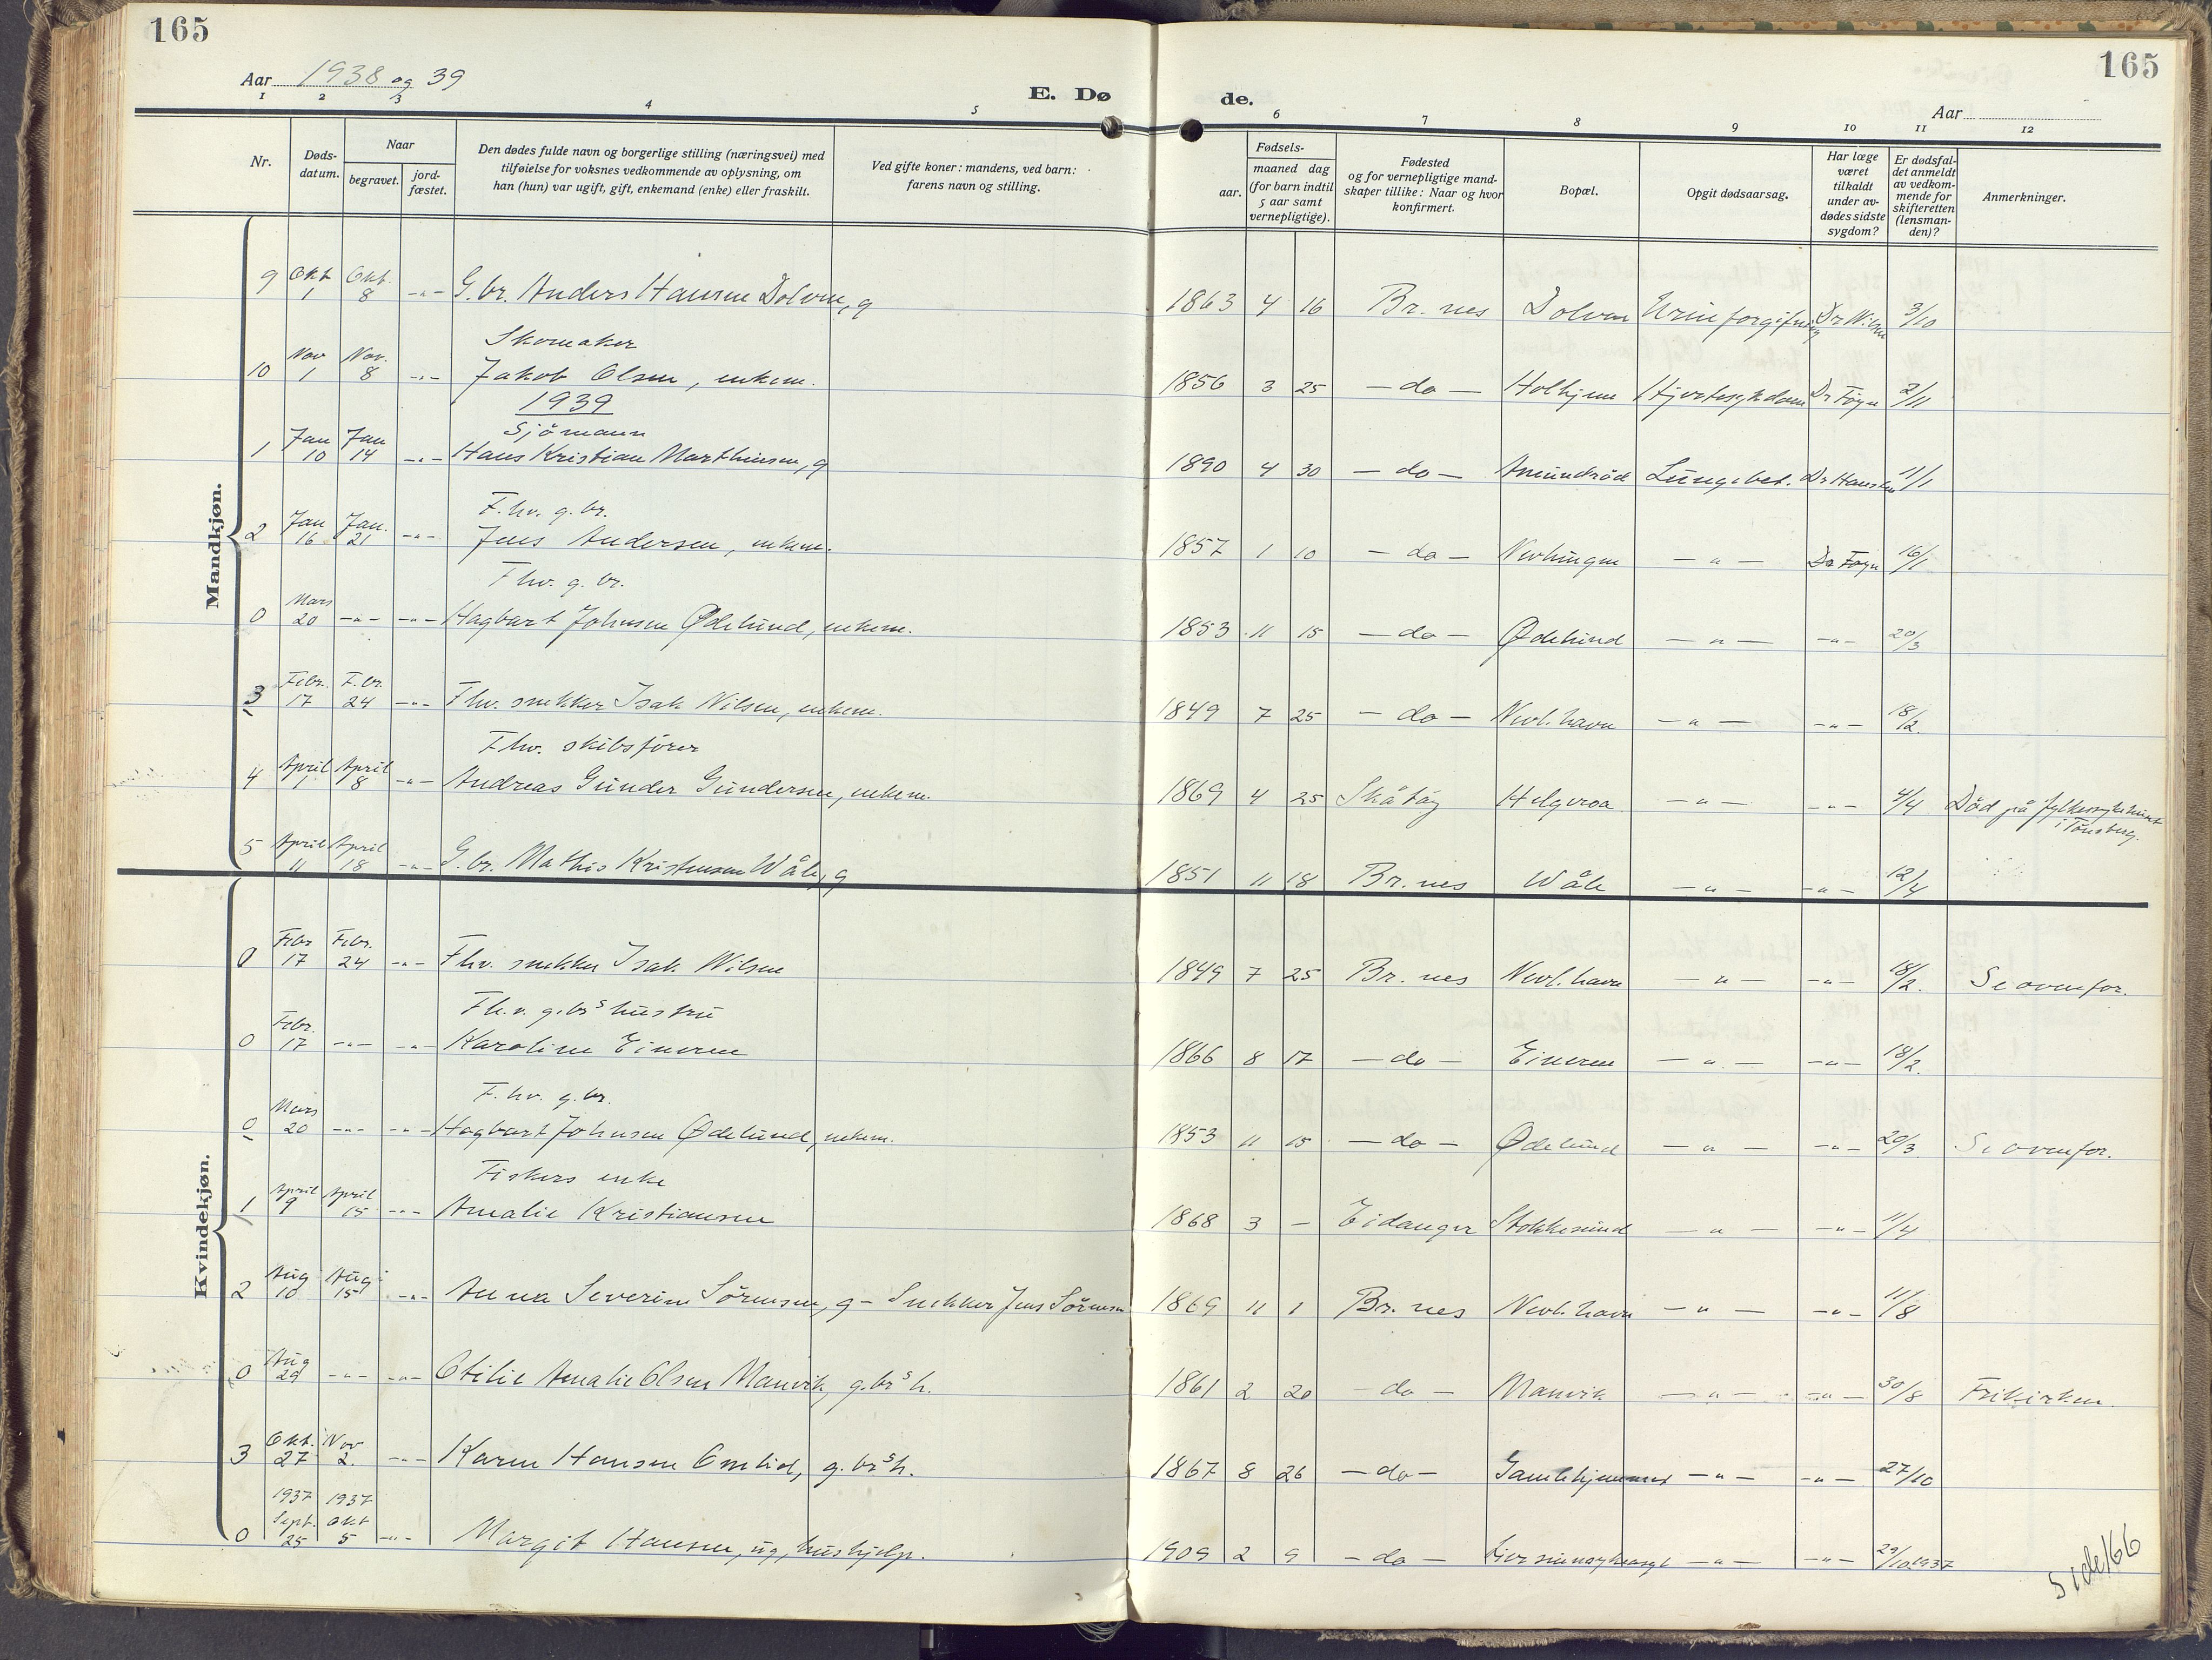 165
165
Aar 1938 og 39
E. Dø
de.
Aar
1 2 3 4 5 6 7 8 9 10 11 12
Nr.
Døds-
datum.
Naar
begravet.
jord-
fæstet.
Den dødes fulde navn og borgerlige stilling (næringsvei) med
tilføielse for voksnes vedkommende av oplysning, om
han (hun) var ugift, gift, enkemand (enke) eller fraskilt.
Ved gifte koner: mandens, ved barn:
farens navn og stilling.
Fødsels-
aar.
maaned dag
(for barn indtil
5 aar samt
vernepligtige).
Fødested
og for vernepligtige mand-
skaper tillike: Naar og hvor
konfirmert.
Bopæl.
Opgit dødsaarsag.
Har læge
været
tilkaldt
under av-
dødes sidste
sygdom?
Er dødsfal-
det anmeldt
av vedkom-
mende for
skifteretten
(lensman-
den)?
Anmerkninger.
Mandkjøn.
9 Okt 1 Okt. 8 -"- G.br. Anders Hansen Dolven, g 1863 4 16 Br.nes Dolven Urinforgiftning 3/10
Skomaker
10 Nov 1 Nov. 8 -"- Jakob Olsen, enkem. 1856 3 25 - do - Holhjem Hjertesykdom Dr Føyn 2/11
1939
Sjömann
1 Jan 10 Jan 14 -"- Hans Kristian Marthinsen, g 1890 4 30 - do - Amundröd Lungebet. 11/1
F.hv. g.br.
2 Jan 16 Jan. 21 -"- Jens Andersen, enkem. 1857 1 10 - do - Nevlungen - " - Dr Føyn 16/1
Fhv. g.br.
0 Mars 20 -"- -"- Hagbart Johnsen Ødelund, enkem. 1853 11 15 - do - Ødelund - " - -"- 20/3
3 Febr. 17 F.br. 24 -"- Fhv. snekker Isak Nilsen, enkem. 1849 7 25 - do - Nevl.havn - " - -"- 18/2
Fhv. skibsfører
4 April 1 April 8 -"- Andreas Gunder Gundersen, enkem. 1869 4 25 Skåtøy Helgeroa - " - -"- 4/4 Död på fylkessykehuset
i Tønsberg.
5 April 11 April 18 -"- G.br. Mathis Kristensen Wåle, g 1851 11 18 Br.nes Wåle - " - -"- 12/4
Kvindekjøn.
0 Febr 17 Febr. 24 -"- Fhv. snekker Isak Nilsen 1849 7 25 Br.nes Nevl.havn - " - -"- 18/2. Se ovenfor.
Fh.v. g.brs hustru
0 Febr. 17 -"- -"- Karoline Eineren 1866 8 17 - do - Eineren - " - -"- 18/2.
F.hv. g.br.
0 Mars 20 -"- -"- Hagbart Johnsen Ødelund, enkem. 1853 11 15 - do - Ødelund - " - -"- 20/3 Se ovenfor.
Fiskers enke
1 April 9 April 15 -"- Amalie Kristiansen 1868 3 - Eidanger Stokkesund - " - -"- 11/4
2 Aug 10 Aug 15 -"- Anna Severine Sörensen, g - Snekker Jens Sörensen 1869 11 1 Br.nes Nevl.havn - " - -"- 11/8
0 Aug 29 -"- -"- Otilie Amalie Olsen Manvik, g.brs h. 1861 2 20 - do - Manvik - " - -"- 30/8 Frikirken.
3 Okt. 27 Nov 2. -"- Karen Hansen Omlid, g.brs h. 1867 8 26 - do - Gamlehjemmet - " - -"- 27/10
1937 1937
0 Sept. 25 Okt 5 -"- Margit Hansen, ug, hushjelp. 1909 2 9 - do - - " - -"- 29/10 1937
Side 166